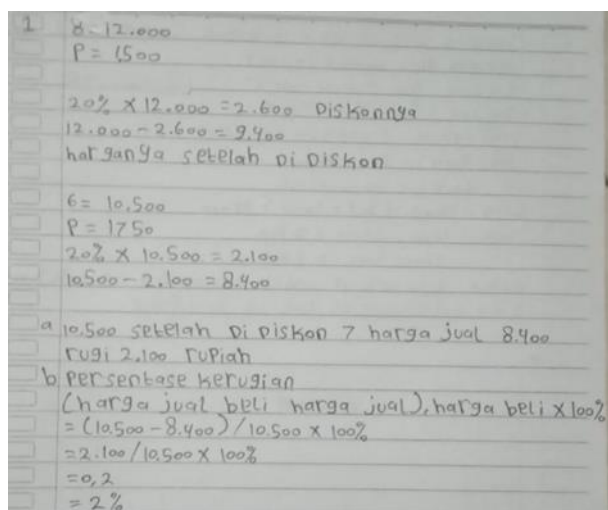 1 8 - 12.000
P = 1500
20% X 12.000 = 2.600 Diskonnya
12.000 - 2.600 = 9.400
harganya setelah Di Diskon
6 = 10.500
P = 1750
20% X 10.500 = 2.100
10.500 - 2.100 = 8.400
a 10.500 setelah Di Diskon 7 harga jual 8.400
rugi 2.100 rupiah
b persentase kerugian
(harga jual beli harga jual), harga beli X 100%
= (10.500 - 8.400) / 10.500 X 100%
= 2.100 / 10.500 X 100%
= 0,2
= 2%